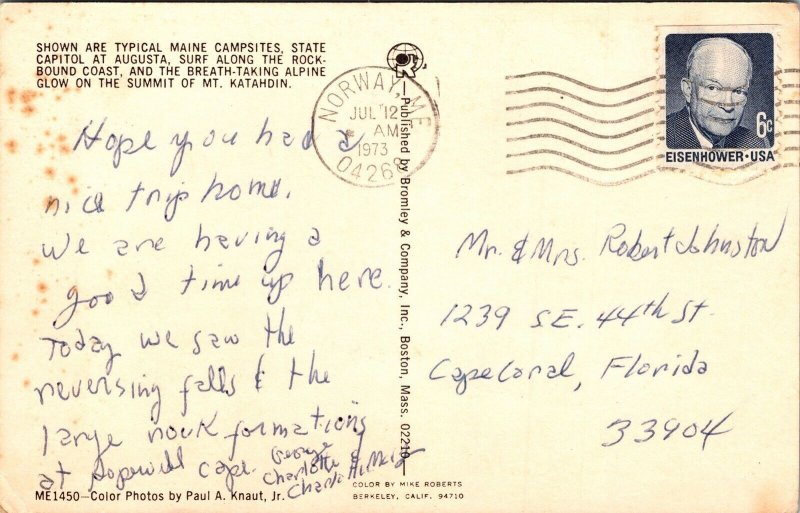 SHOWN ARE TYPICAL MAINE CAMPSITES, STATE
CAPITOL AT AUGUSTA, SURF ALONG THE ROCK-
BOUND COAST, AND THE BREATH-TAKING ALPINE
GLOW ON THE SUMMIT OF MT. KATAHDIN.
Hope you had a
nice trip home.
We are having a
good time up here.
Today we saw the
reversing falls & the
large rock formations
at Hopewell Cape.
George
Charlotte &
ME1450—Color Photos by Paul A. Knaut, Jr.
—Published by Bromley & Company, Inc., Boston, Mass. 02210—
COLOR BY MIKE ROBERTS
BERKELEY, CALIF. 94710
NORWAY, ME
JUL 12
AM
1973
04268
6c
EISENHOWER·USA
Mr. & Mrs. Robert Johnston
1239 S.E. 44th St.
Cape Coral, Florida
33904